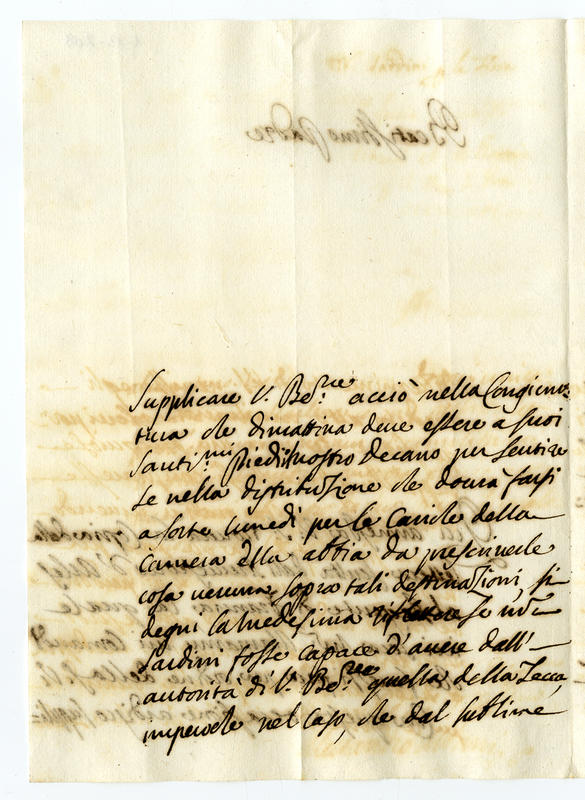 Supplicare V. Be.ne acciò nella Congiun-
tura che dimattina deve essere a suoi
santi.mi Piedi il nostro Decano per sentire
se nella distribuzione che dovrà farsi
a sorte lunedì per le Cariche della
Camera Ella abbia da prescriverle
cosa veruna sopra tali destinazioni, si
degni la medesima riflettere se
Sardini fosse capace d'avere dall'
autorità di V. Be.ne quella della Zecca,
imperoche nel caso, che dal sublime